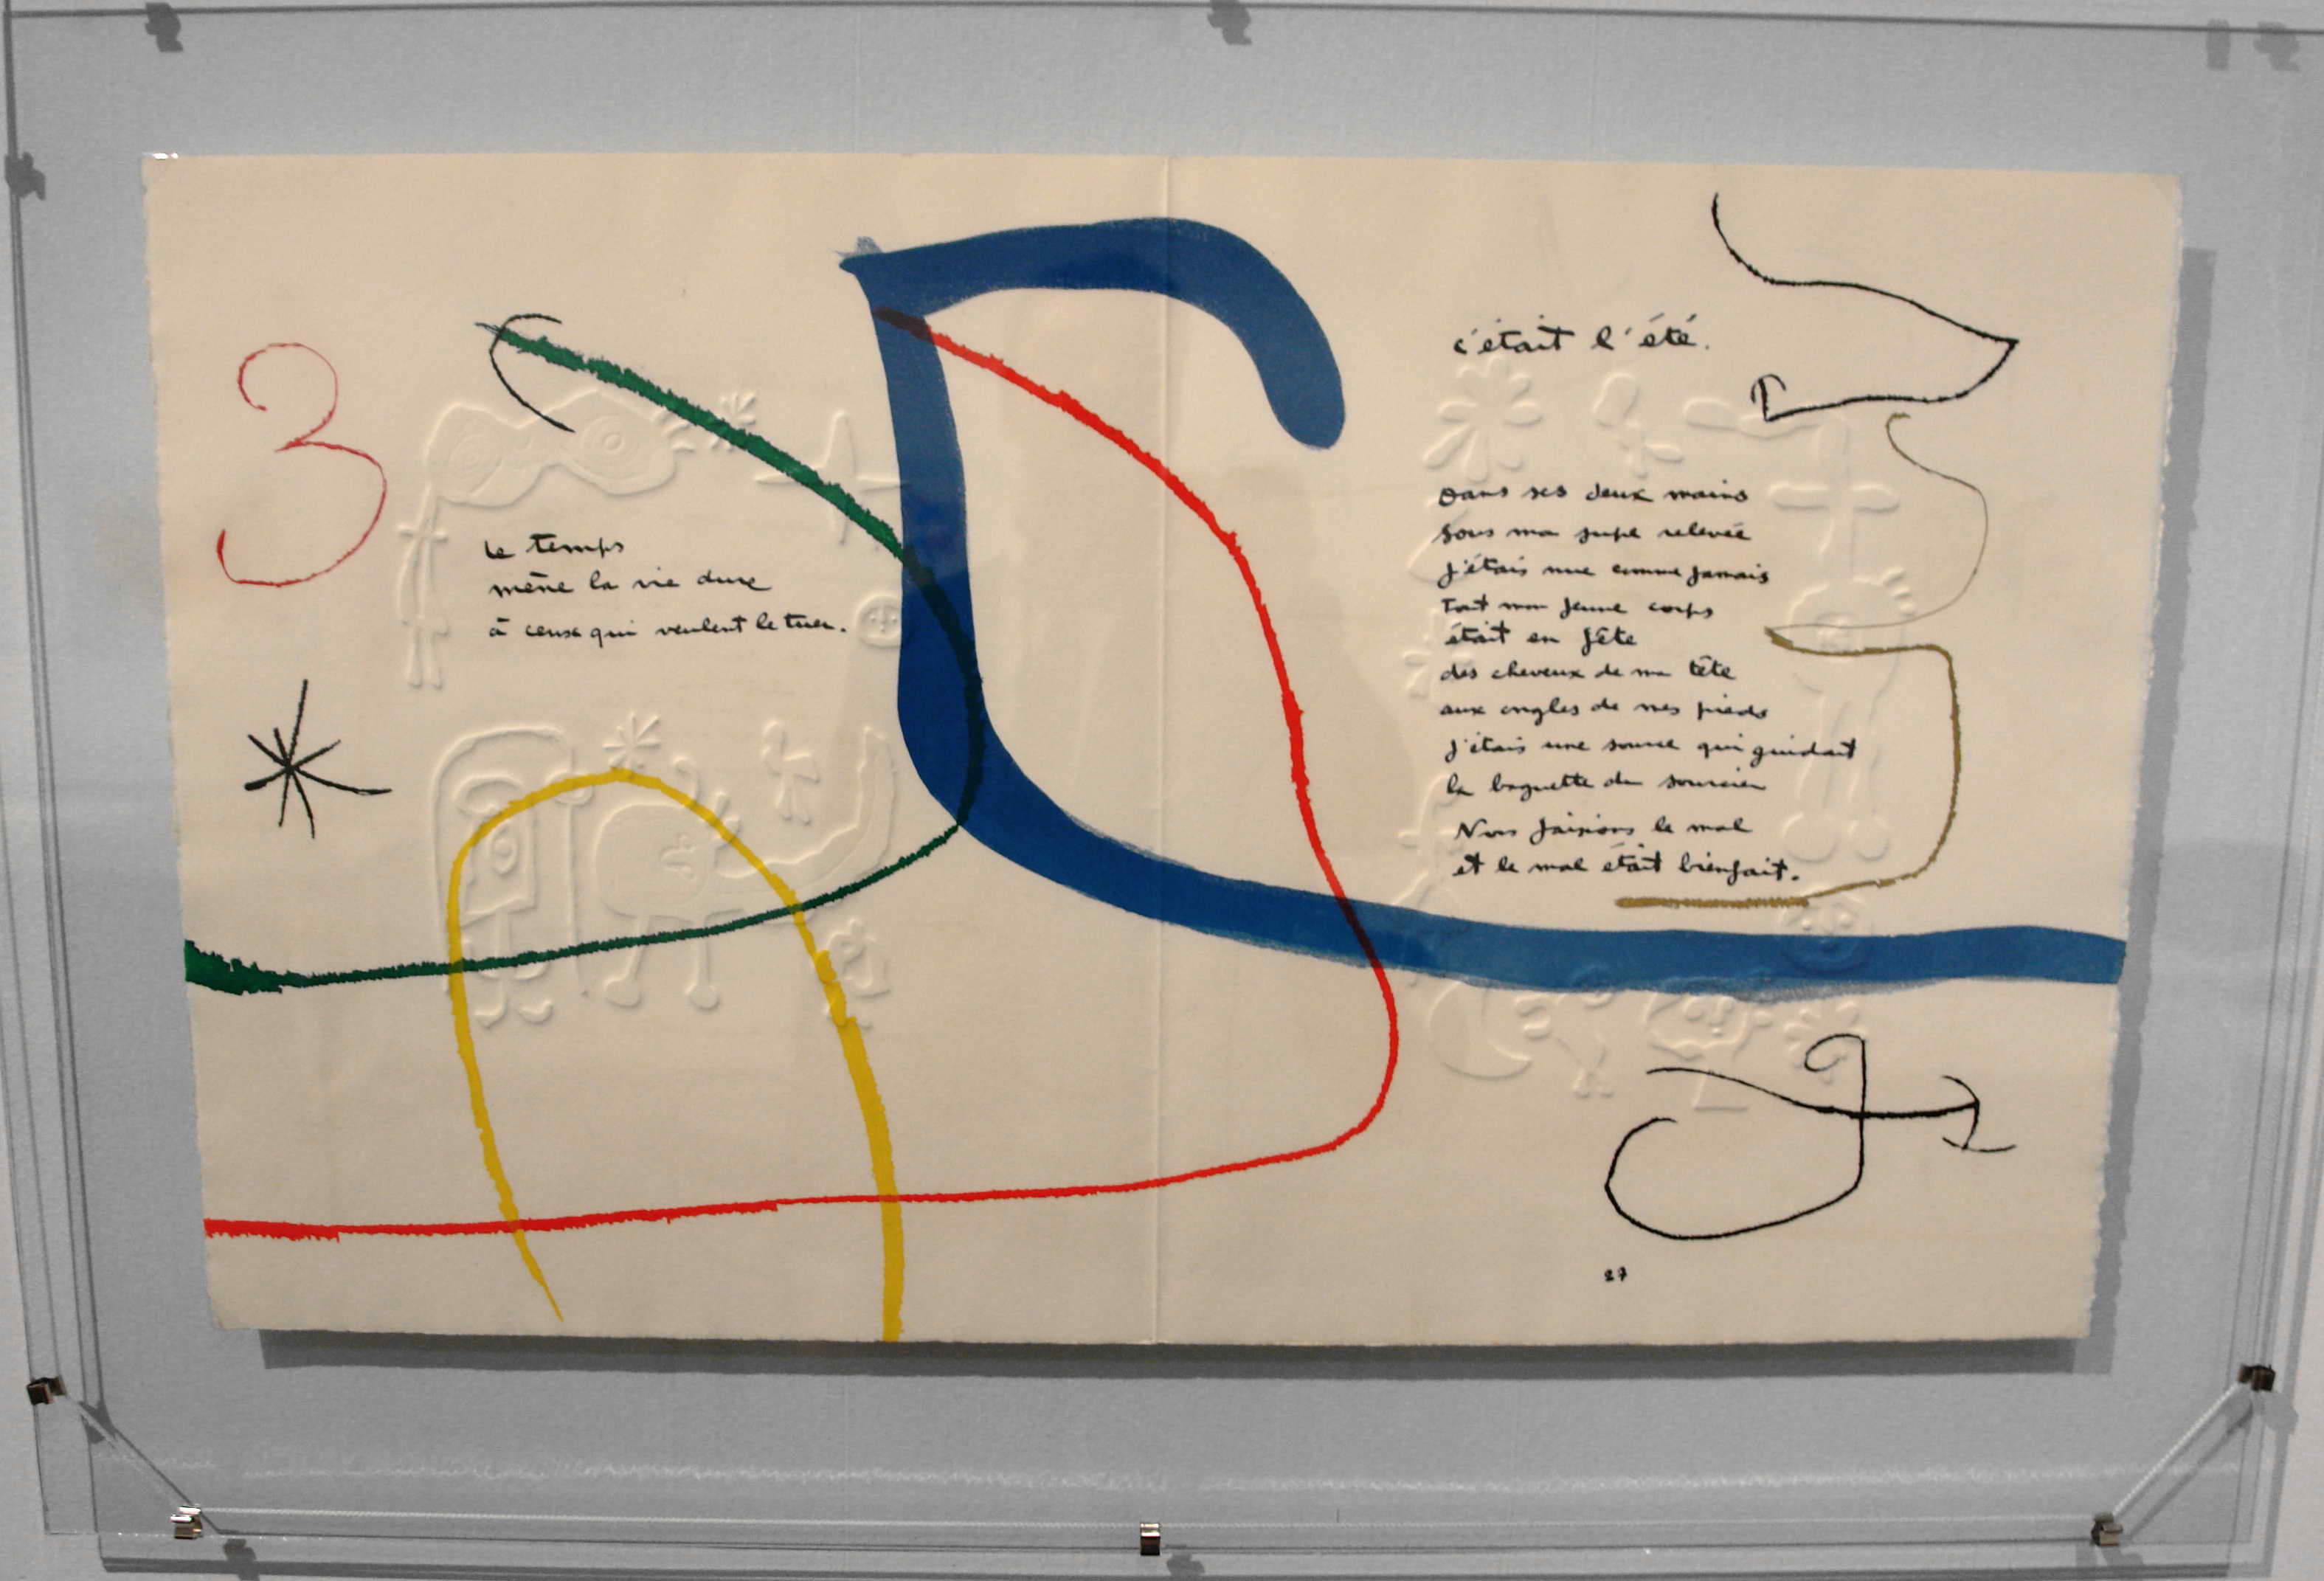 3
le temps
mène la vie dure
à ceux qui veulent le tuer.
c'était l'été.
Dans ses deux mains
sous ma jupe relevée
j'étais nue comme jamais
Tout mon jeune corps
était en fête
des cheveux de ma tête
aux ongles de mes pieds
j'étais une source qui guidait
la baguette du sourcier
Nous faisions le mal
et le mal était bienfait.
27